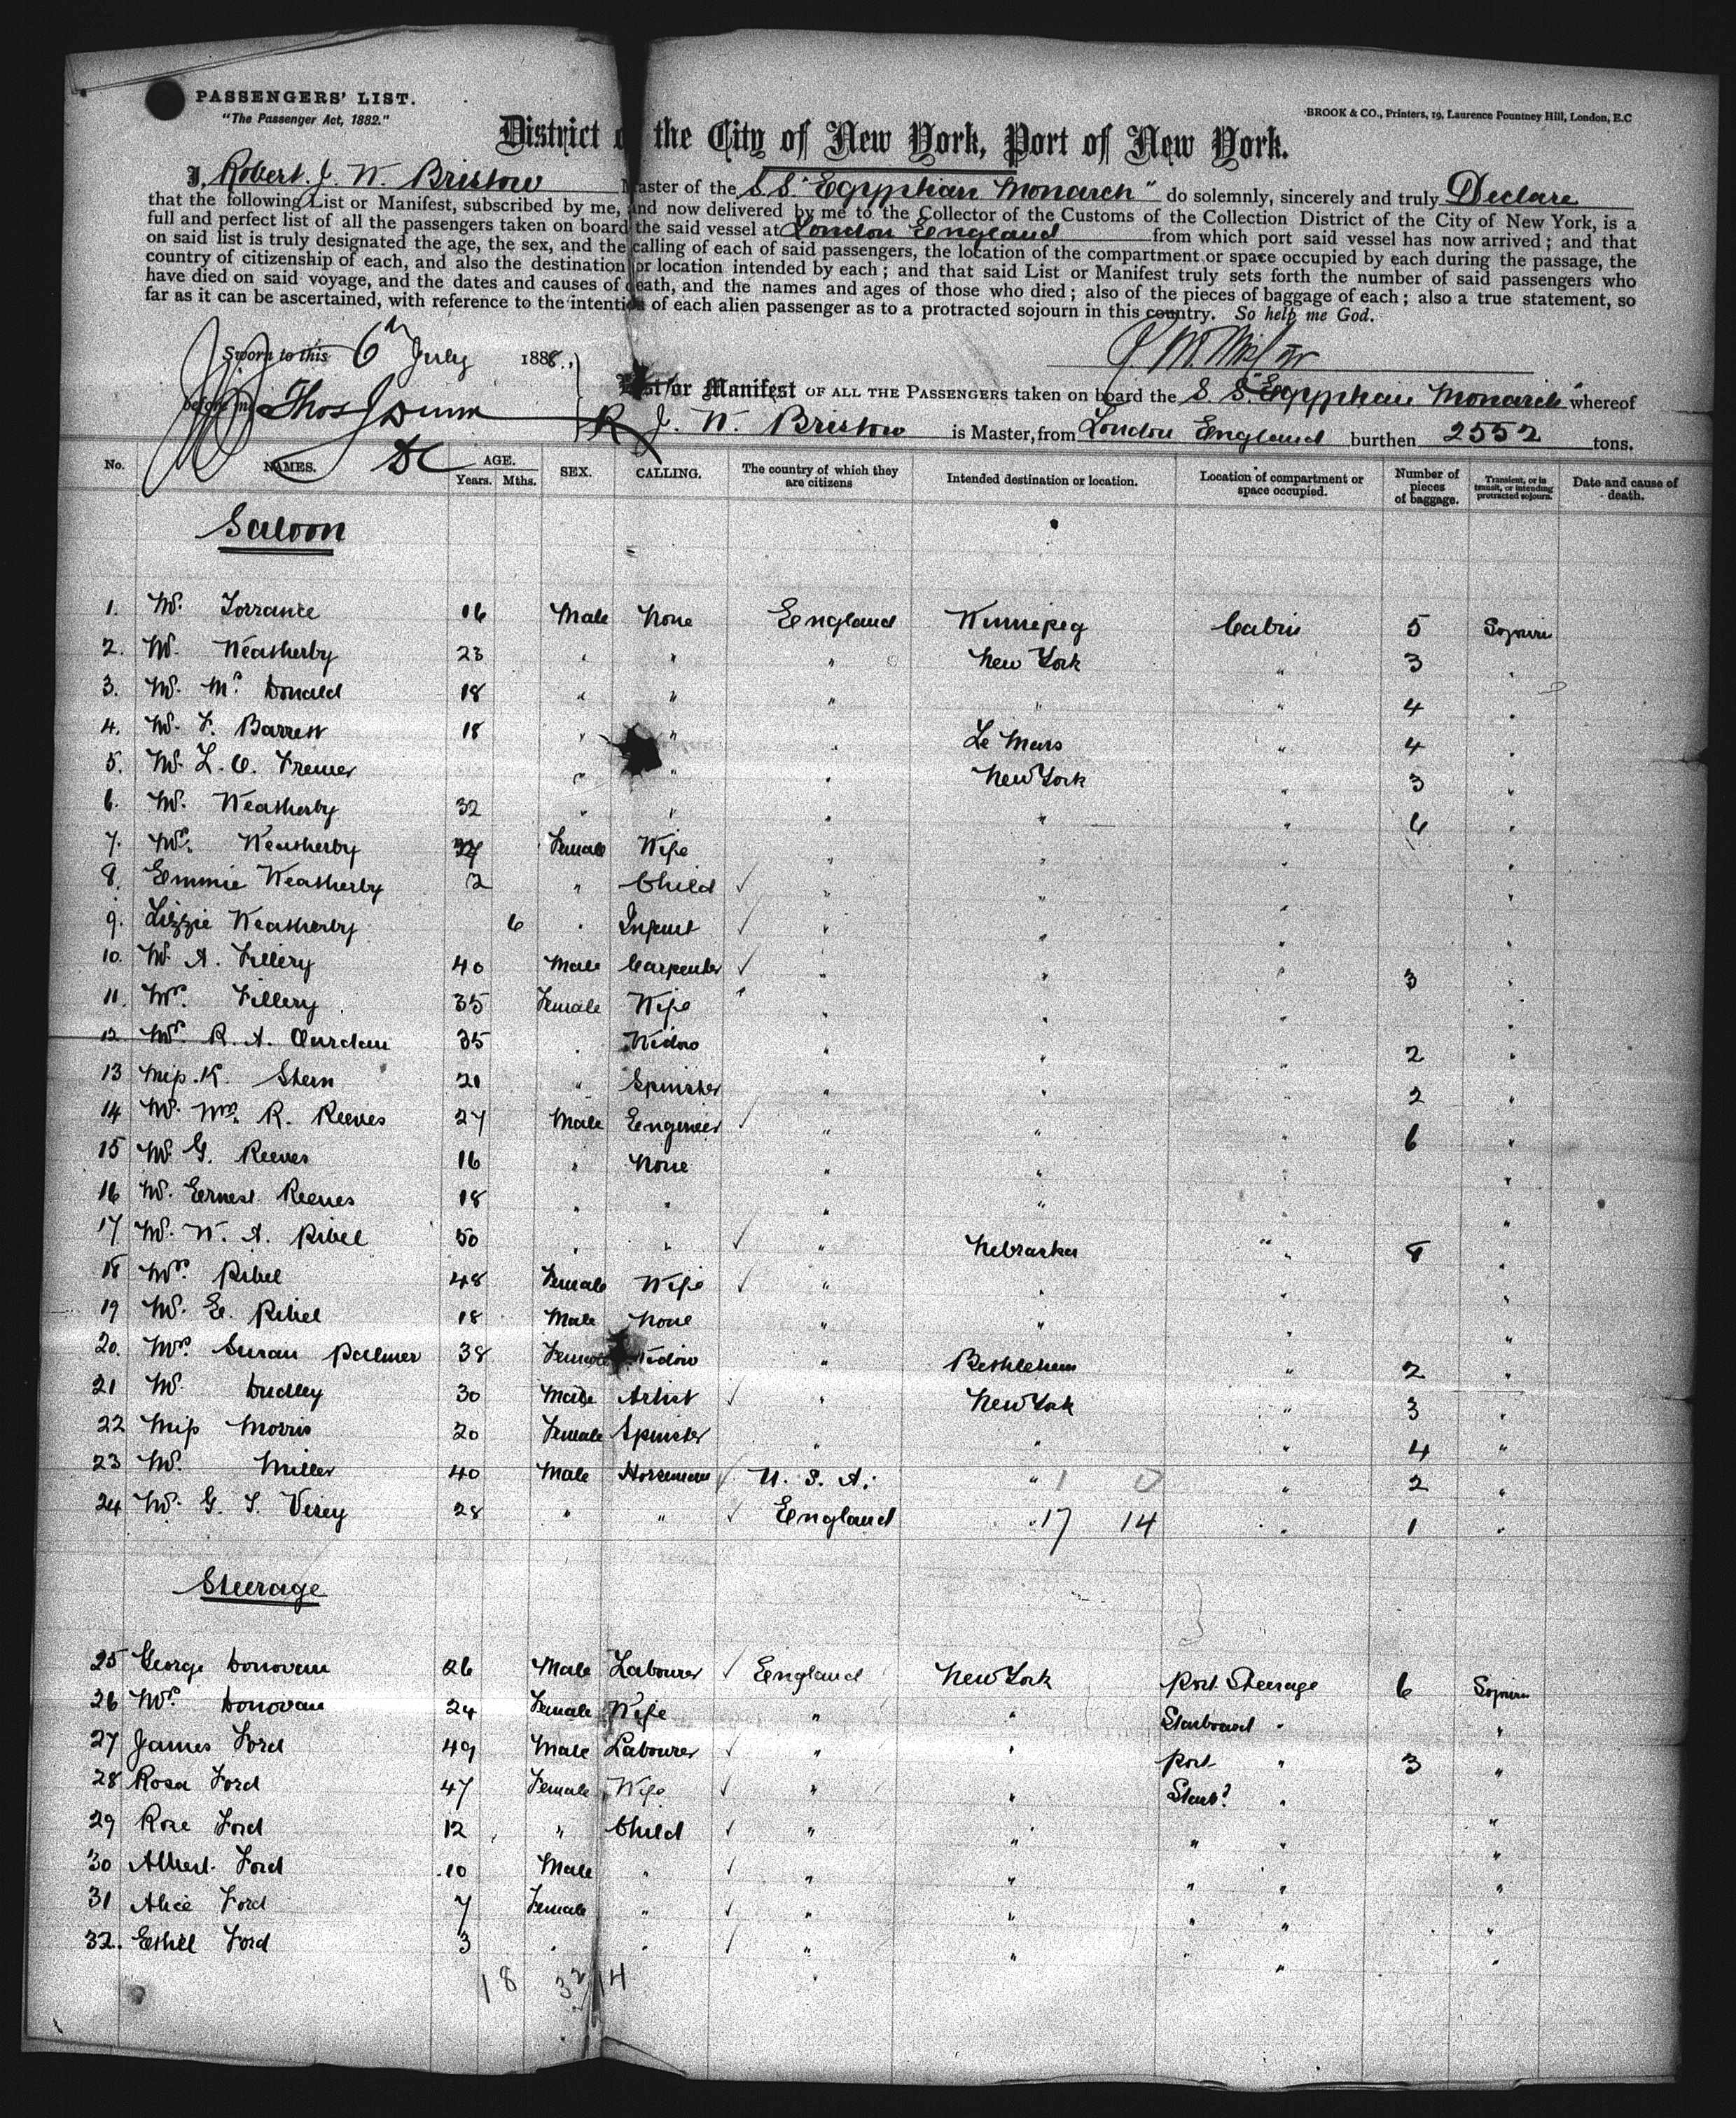 PASSENGERS' LIST.
"The Passenger Act, 1882."
BROOK & CO., Printers, 19, Laurence Pountney Hill, London, E.C
District of the City of New York, Port of New York.
I, Robert. J. W. Bristow Master of the S.S. "Egyptian Monarch" do solemnly, sincerely and truly Declare
that the following List or Manifest, subscribed by me, and now delivered by me to the Collector of the Customs of the Collection District of the City of New York, is a
full and perfect list of all the passengers taken on board the said vessel at London England from which port said vessel has now arrived; and that
on said list is truly designated the age, the sex, and the calling of each of said passengers, the location of the compartment or space occupied by each during the passage, the
country of citizenship of each, and also the destination or location intended by each; and that said List or Manifest truly sets forth the number of said passengers who
have died on said voyage, and the dates and causes of death, and the names and ages of those who died; also of the pieces of baggage of each; also a true statement, so
far as it can be ascertained, with reference to the intention of each alien passenger as to a protracted sojourn in this country. So help me God.
Sworn to this 6th July 1888.,
before me Thos J Dunn
DC
List or Manifest OF ALL THE PASSENGERS taken on board the S. S. "Egyptian Monarch" whereof
R J. W. Bristow is Master, from London England burthen 2552 tons.
No. NAMES. AGE. Years. Mths. SEX. CALLING. The country of which they are citizens Intended destination or location. Location of compartment or space occupied. Number of pieces of baggage. Transient, or in transit, or intending protracted sojourn. Date and cause of death.
Saloon
1. Mr. Torrance 16 Male None England Winnipeg Cabin 5 Sojourn
2. Mr. Weatherby 23 " " " New York " 3 "
3. Mr. Mc Donald 18 " " " " " 4 "
4. Mr. F. Barrett 18 " " " Le Mars " 4 "
5. Mr. L. C. " " " New York " 3 "
6. Mr. Weatherby 32 " " " " " 6 "
7. Mrs. Weatherby Female Wife " " " "
8. Emmie Weatherby 2 " Child " " " "
9. Lizzie Weatherby 6 " Infant " " " "
10. Mr. A. Fillery 40 Male Carpenter " " " 3 "
11. Mrs. Fillery 35 Female Wife " " " "
12. Mrs. R. A. 35 " Widow " " " 2 "
13 Miss. K. Stern 21 " Spinster " " " 2 "
14 Mr. Wm. R. Reeves 27 Male Engineer " " " 6 "
15 Mr. G. Reeves 16 " None " " " "
16 Mr. Ernest. Reeves 18 " " " " "
17 Mr. W. A. Ribel 50 " " " Nebraska " 8 "
18 Mrs. Ribel 48 Female Wife " " " "
19 Mr. E. Ribel 18 Male None " " " "
20. Mrs. Susan Palmer 38 Female Widow " Bethlehem " 2 "
21 Mr. Dudley 30 Male Artist " New York " 3 "
22 Miss Morris 20 Female Spinster " " " 4 "
23 Mr. Miller 40 Male Horseman U. S. A. " 1 0 " 2 "
24 Mr. G. S. Verey 28 " " England " 17 14 " 1 "
Steerage
25 George Donovan 26 Male Labourer England New York Port Steerage 6 Sojourn
26 Mrs. Donovan 24 Female Wife " " Starboard " "
27 James Ford 49 Male Labourer " " Port " 3 "
28 Rosa Ford 47 Female Wife " " Starbd. " "
29 Rose Ford 12 " Child " " " " "
30 Albert. Ford 10 Male " " " " " "
31 Alice Ford 7 Female " " " " " "
32. Ethel Ford 3 " " " " " " "
18 32 14